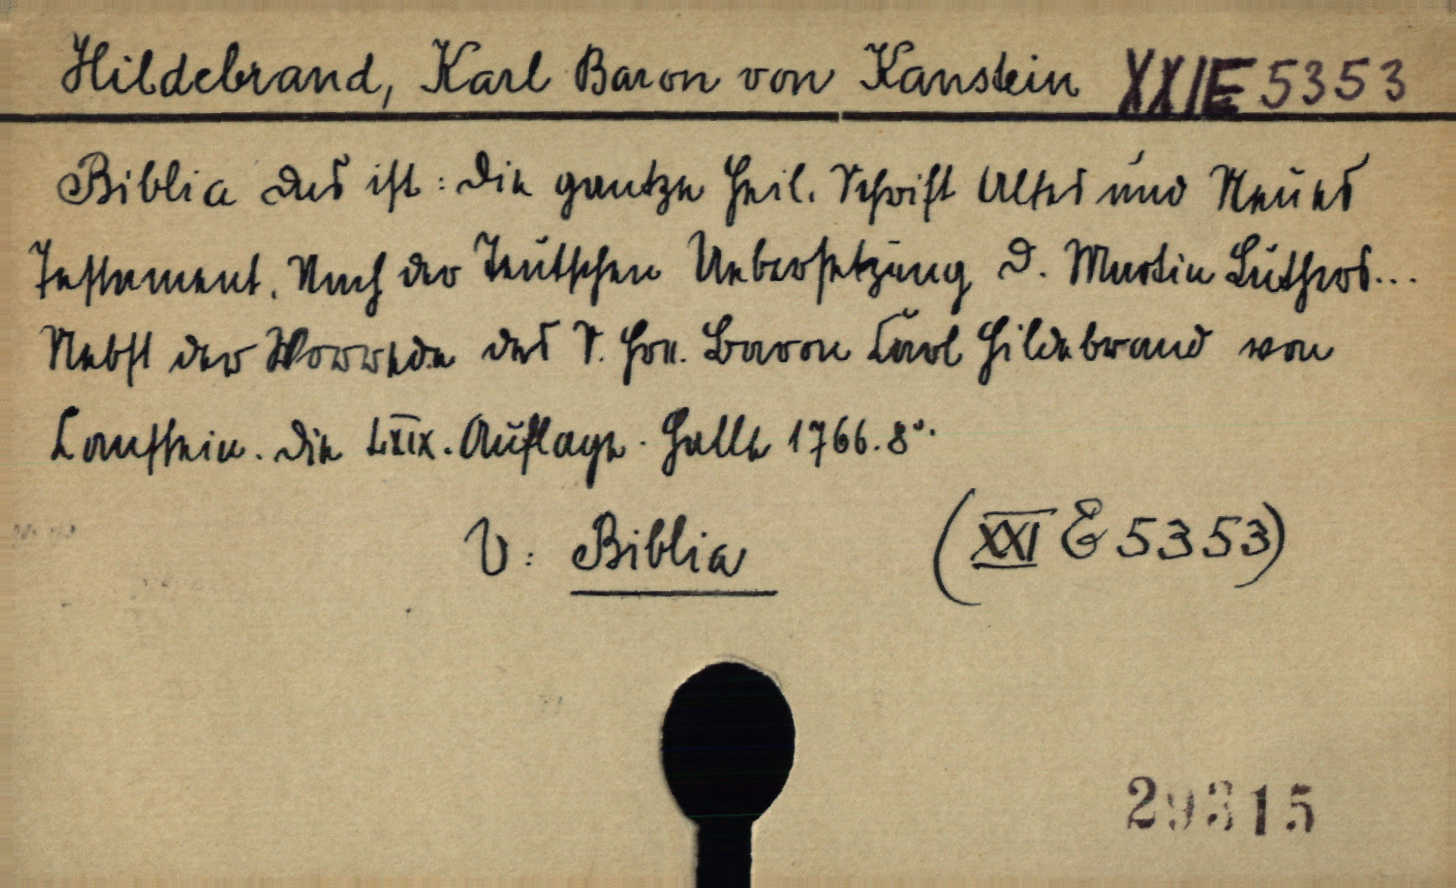 Hildebrand, Karl Baron von Kanstein XXIE 5353
Biblia das ist: Die gantze Heil. Schrift Altes und Neues
Testament. Nach der Teutschen Uebersetzung D. Martin Luthers...
Nebst der Vorrede des S. Hrn. Baron Carl Hildebrand von
Canstein. Die LXIX. Auflage. Halle 1766. 8°.
V: Biblia (XXI E 5353)
29315